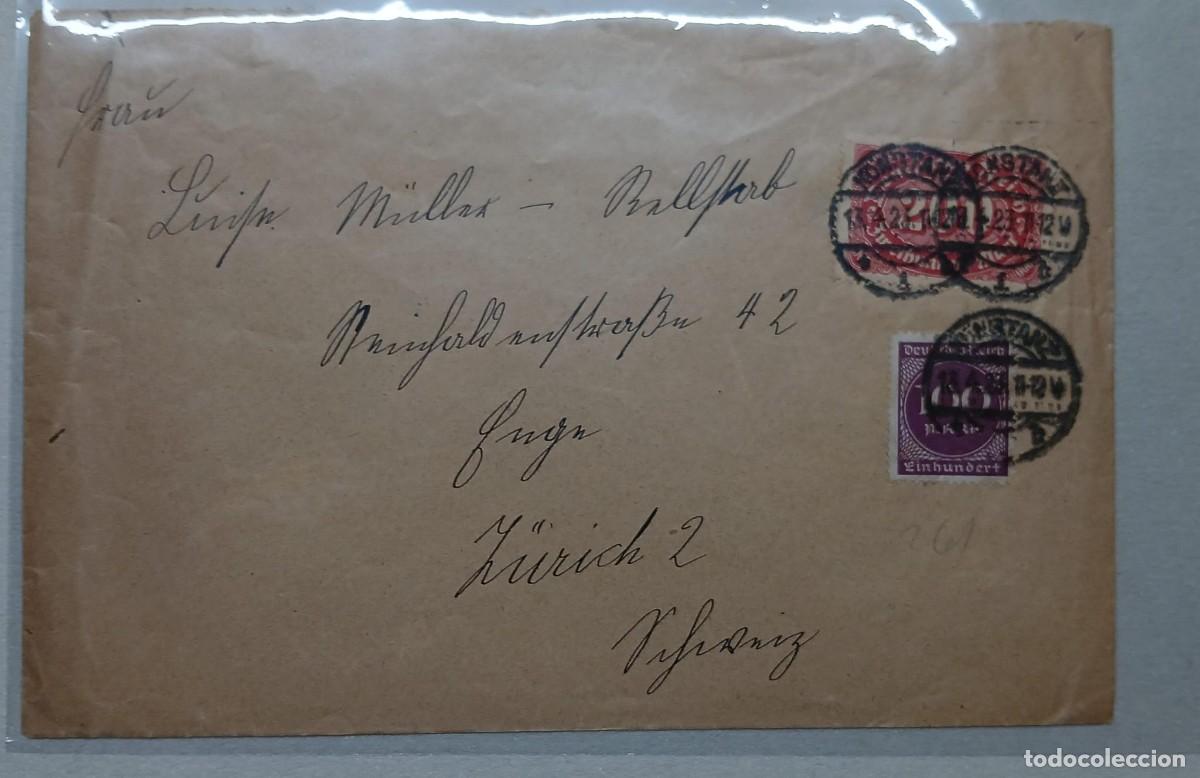 Frau
Luise Müller - Rellstab
Steinhaldenstraße 42
Enge
Zürich 2
Schweiz
KONSTANZ
KONSTANZ
200
1
1
Deutsches Reich
100
Mark
Einhundert
KONSTANZ
11-12 V
261
todocoleccion